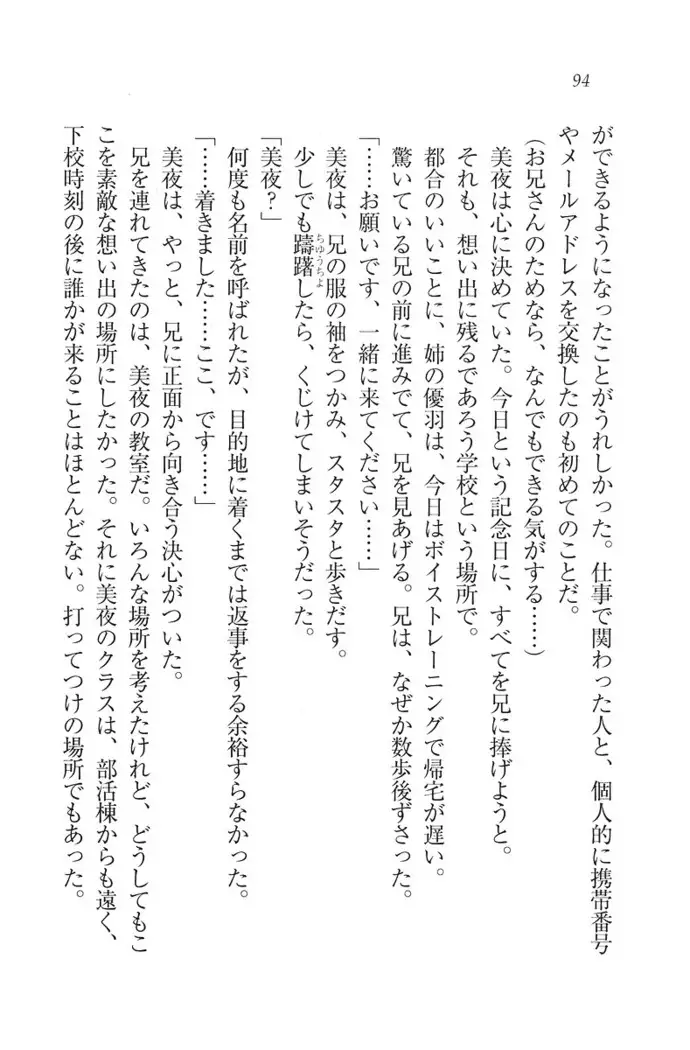 94
ができるようになったことがうれしかった。仕事で関わった人と、個人的に携帯番号
やメールアドレスを交換したのも初めてのことだ。
(お兄さんのためなら、なんでもできる気がする……)
美夜は心に決めていた。今日という記念日に、すべてを兄に捧げようと。
それも、想い出に残るであろう学校という場所で。
都合のいいことに、姉の優羽は、今日はボイストレーニングで帰宅が遅い。
驚いている兄の前に進みでて、兄を見あげる。兄は、なぜか数歩後ずさった。
「……お願いです、一緒に来てください……」
美夜は、兄の服の袖をつかみ、スタスタと歩きだす。
少しでも躊躇したら、くじけてしまいそうだった。
ちゅうちょ
「美夜?」
何度も名前を呼ばれたが、目的地に着くまでは返事をする余裕すらなかった。
「……着きました……ここ、です……」
美夜は、やっと、兄に正面から向き合う決心がついた。
兄を連れてきたのは、美夜の教室だ。いろんな場所を考えたけれど、どうしてもこ
こを素敵な想い出の場所にしたかった。それに美夜のクラスは、部活棟からも遠く、
下校時刻の後に誰かが来ることはほとんどない。打ってつけの場所でもあった。